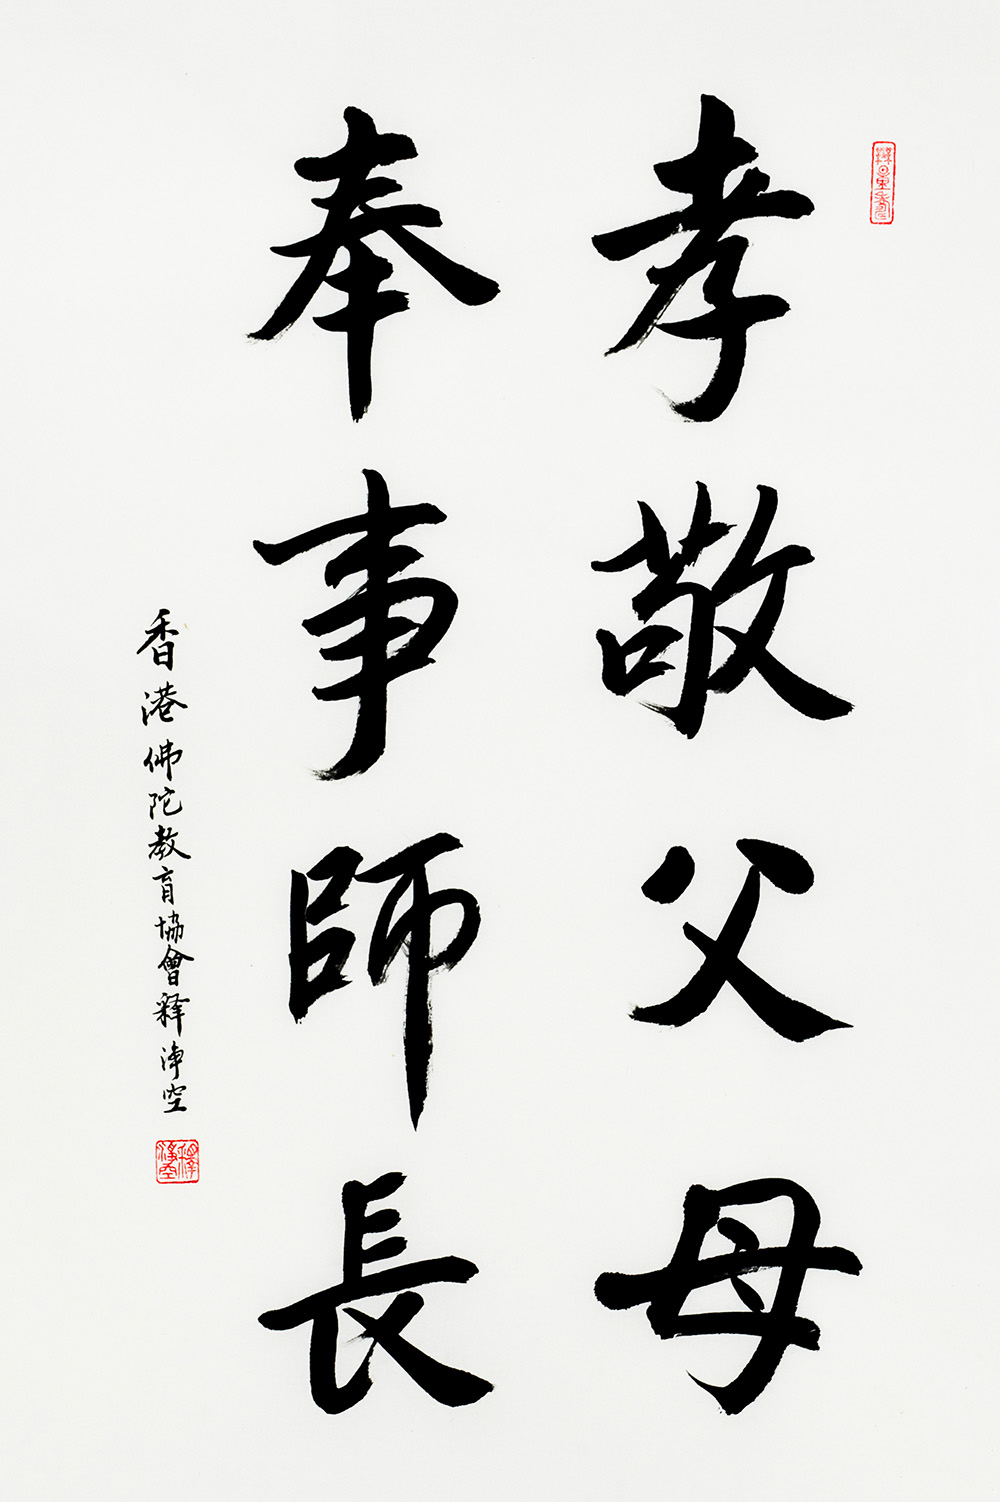 孝敬父母
奉事師長
香港佛陀教育協會释淨空
釋淨空